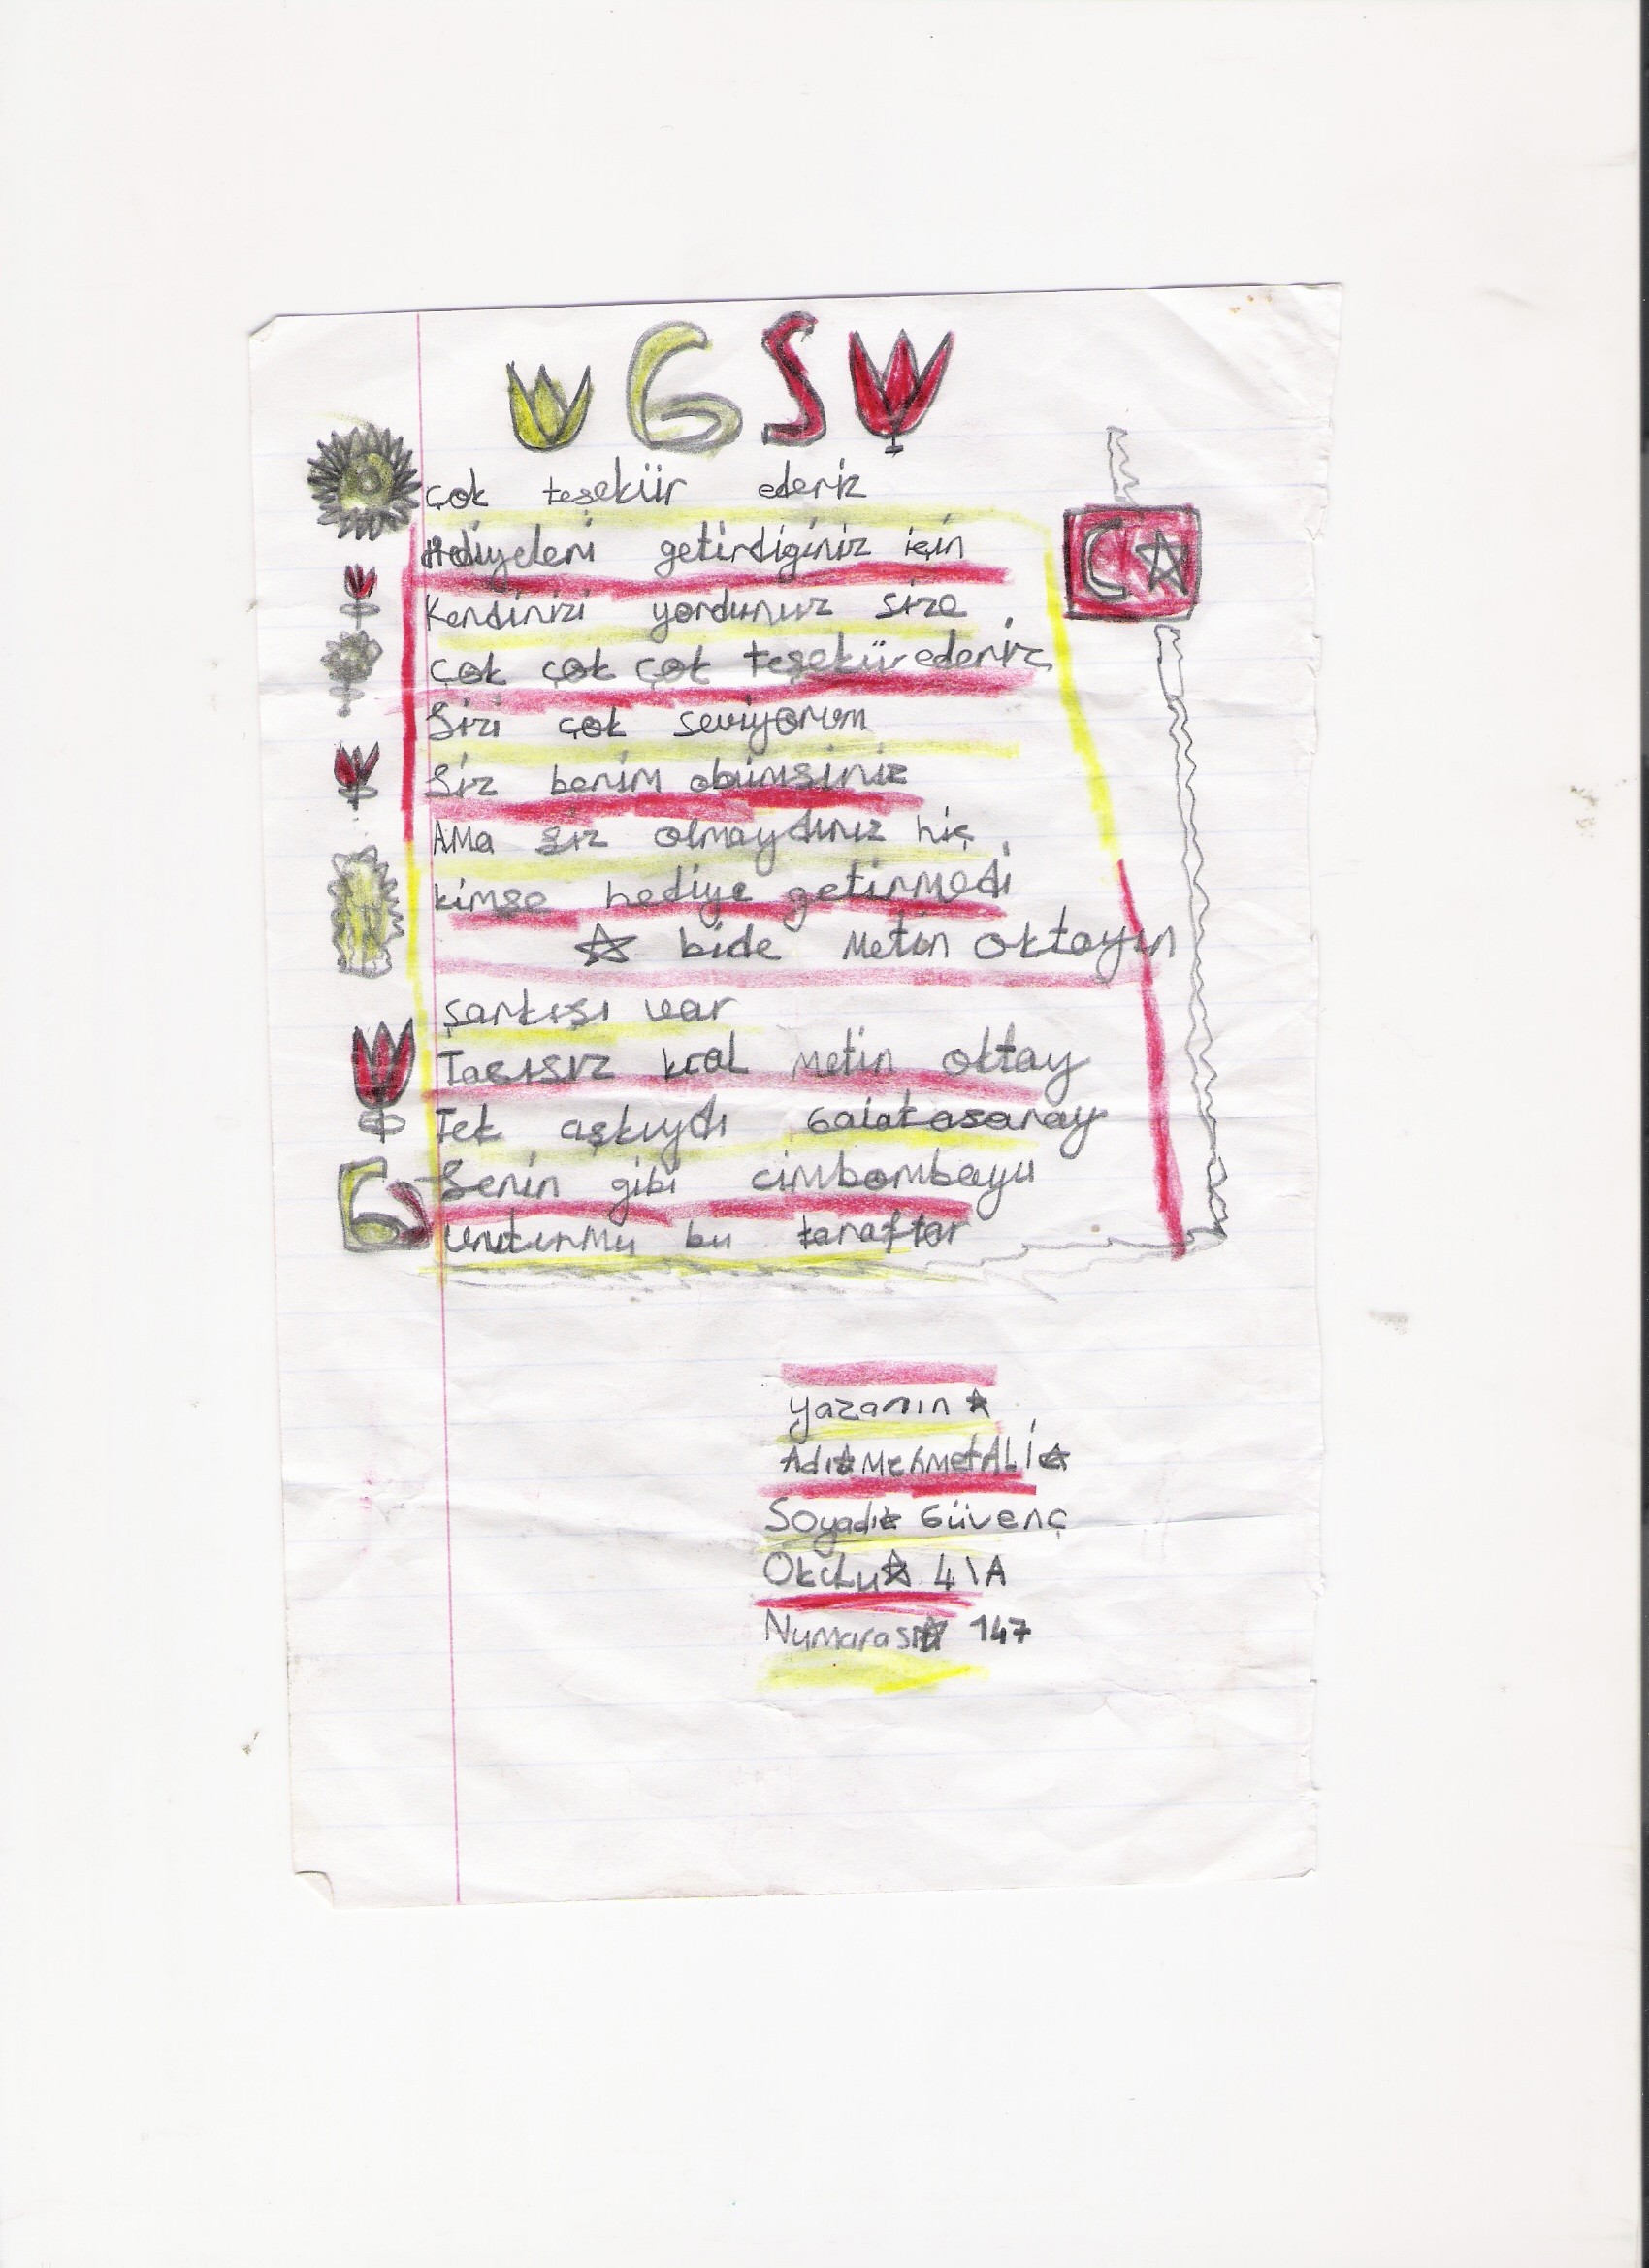 GS
çok teşekür ederiz
Hediyeleri getirdiginiz için
Kendinizi yordunuz size
çok çok çok teşekür ederiz
Sizi çok seviyorum
Siz benim abimsiniz
AMa siz olmaydınız hiç
kimse hediye getirmedi
☆ bide Metin oktayın
şarkısı var
Tacısız kral Metin oktay
Tek aşkıydı Galatasaray
Senin gibi cimbombayu
Unuturmu bu taraftar
G
yazarın ☆
Adı☆MehmetALİ☆
Soyadı☆ Güvenç
Okulu☆ 4\A
Numarası☆ 147